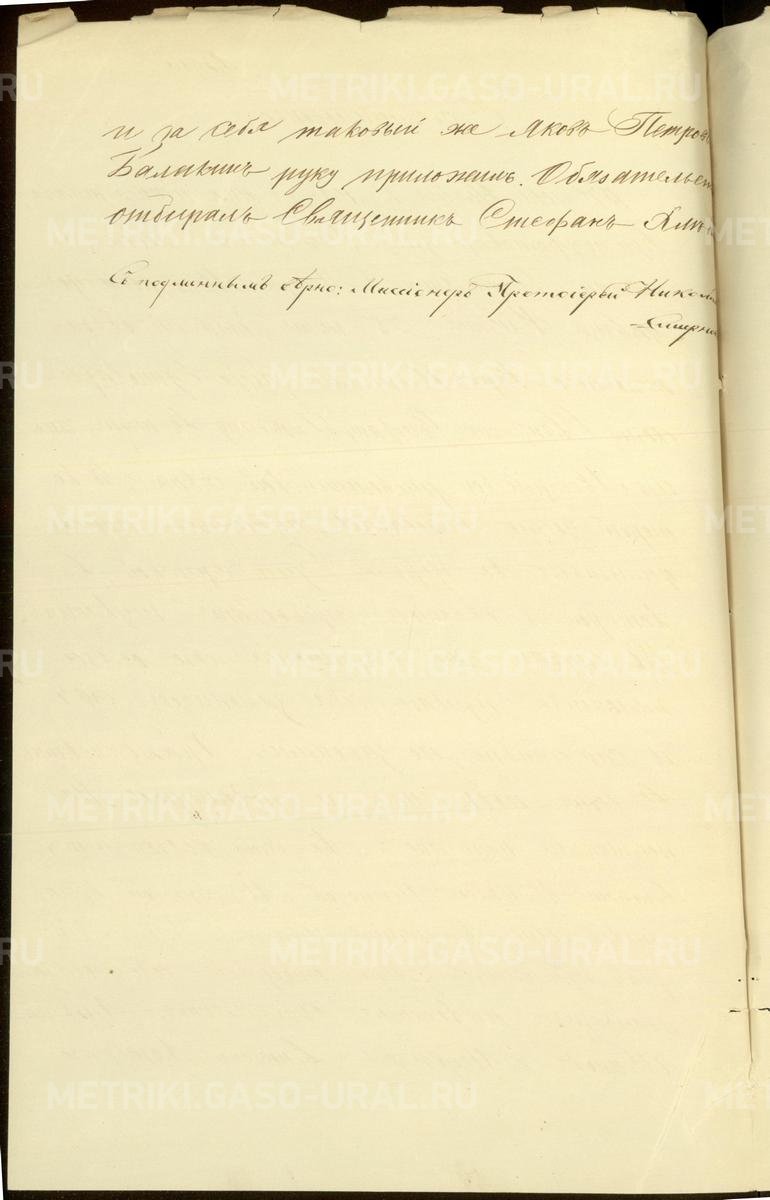 и за себя таковый же Яковъ Петровъ
Балакинъ руку приложилъ. Обязательст
отбиралъ Священникъ Стефанъ
Съ подлиннымъ вѣрно: Миссіонеръ Протоіерей Никола
METRIKI.GASO-URAL.RU